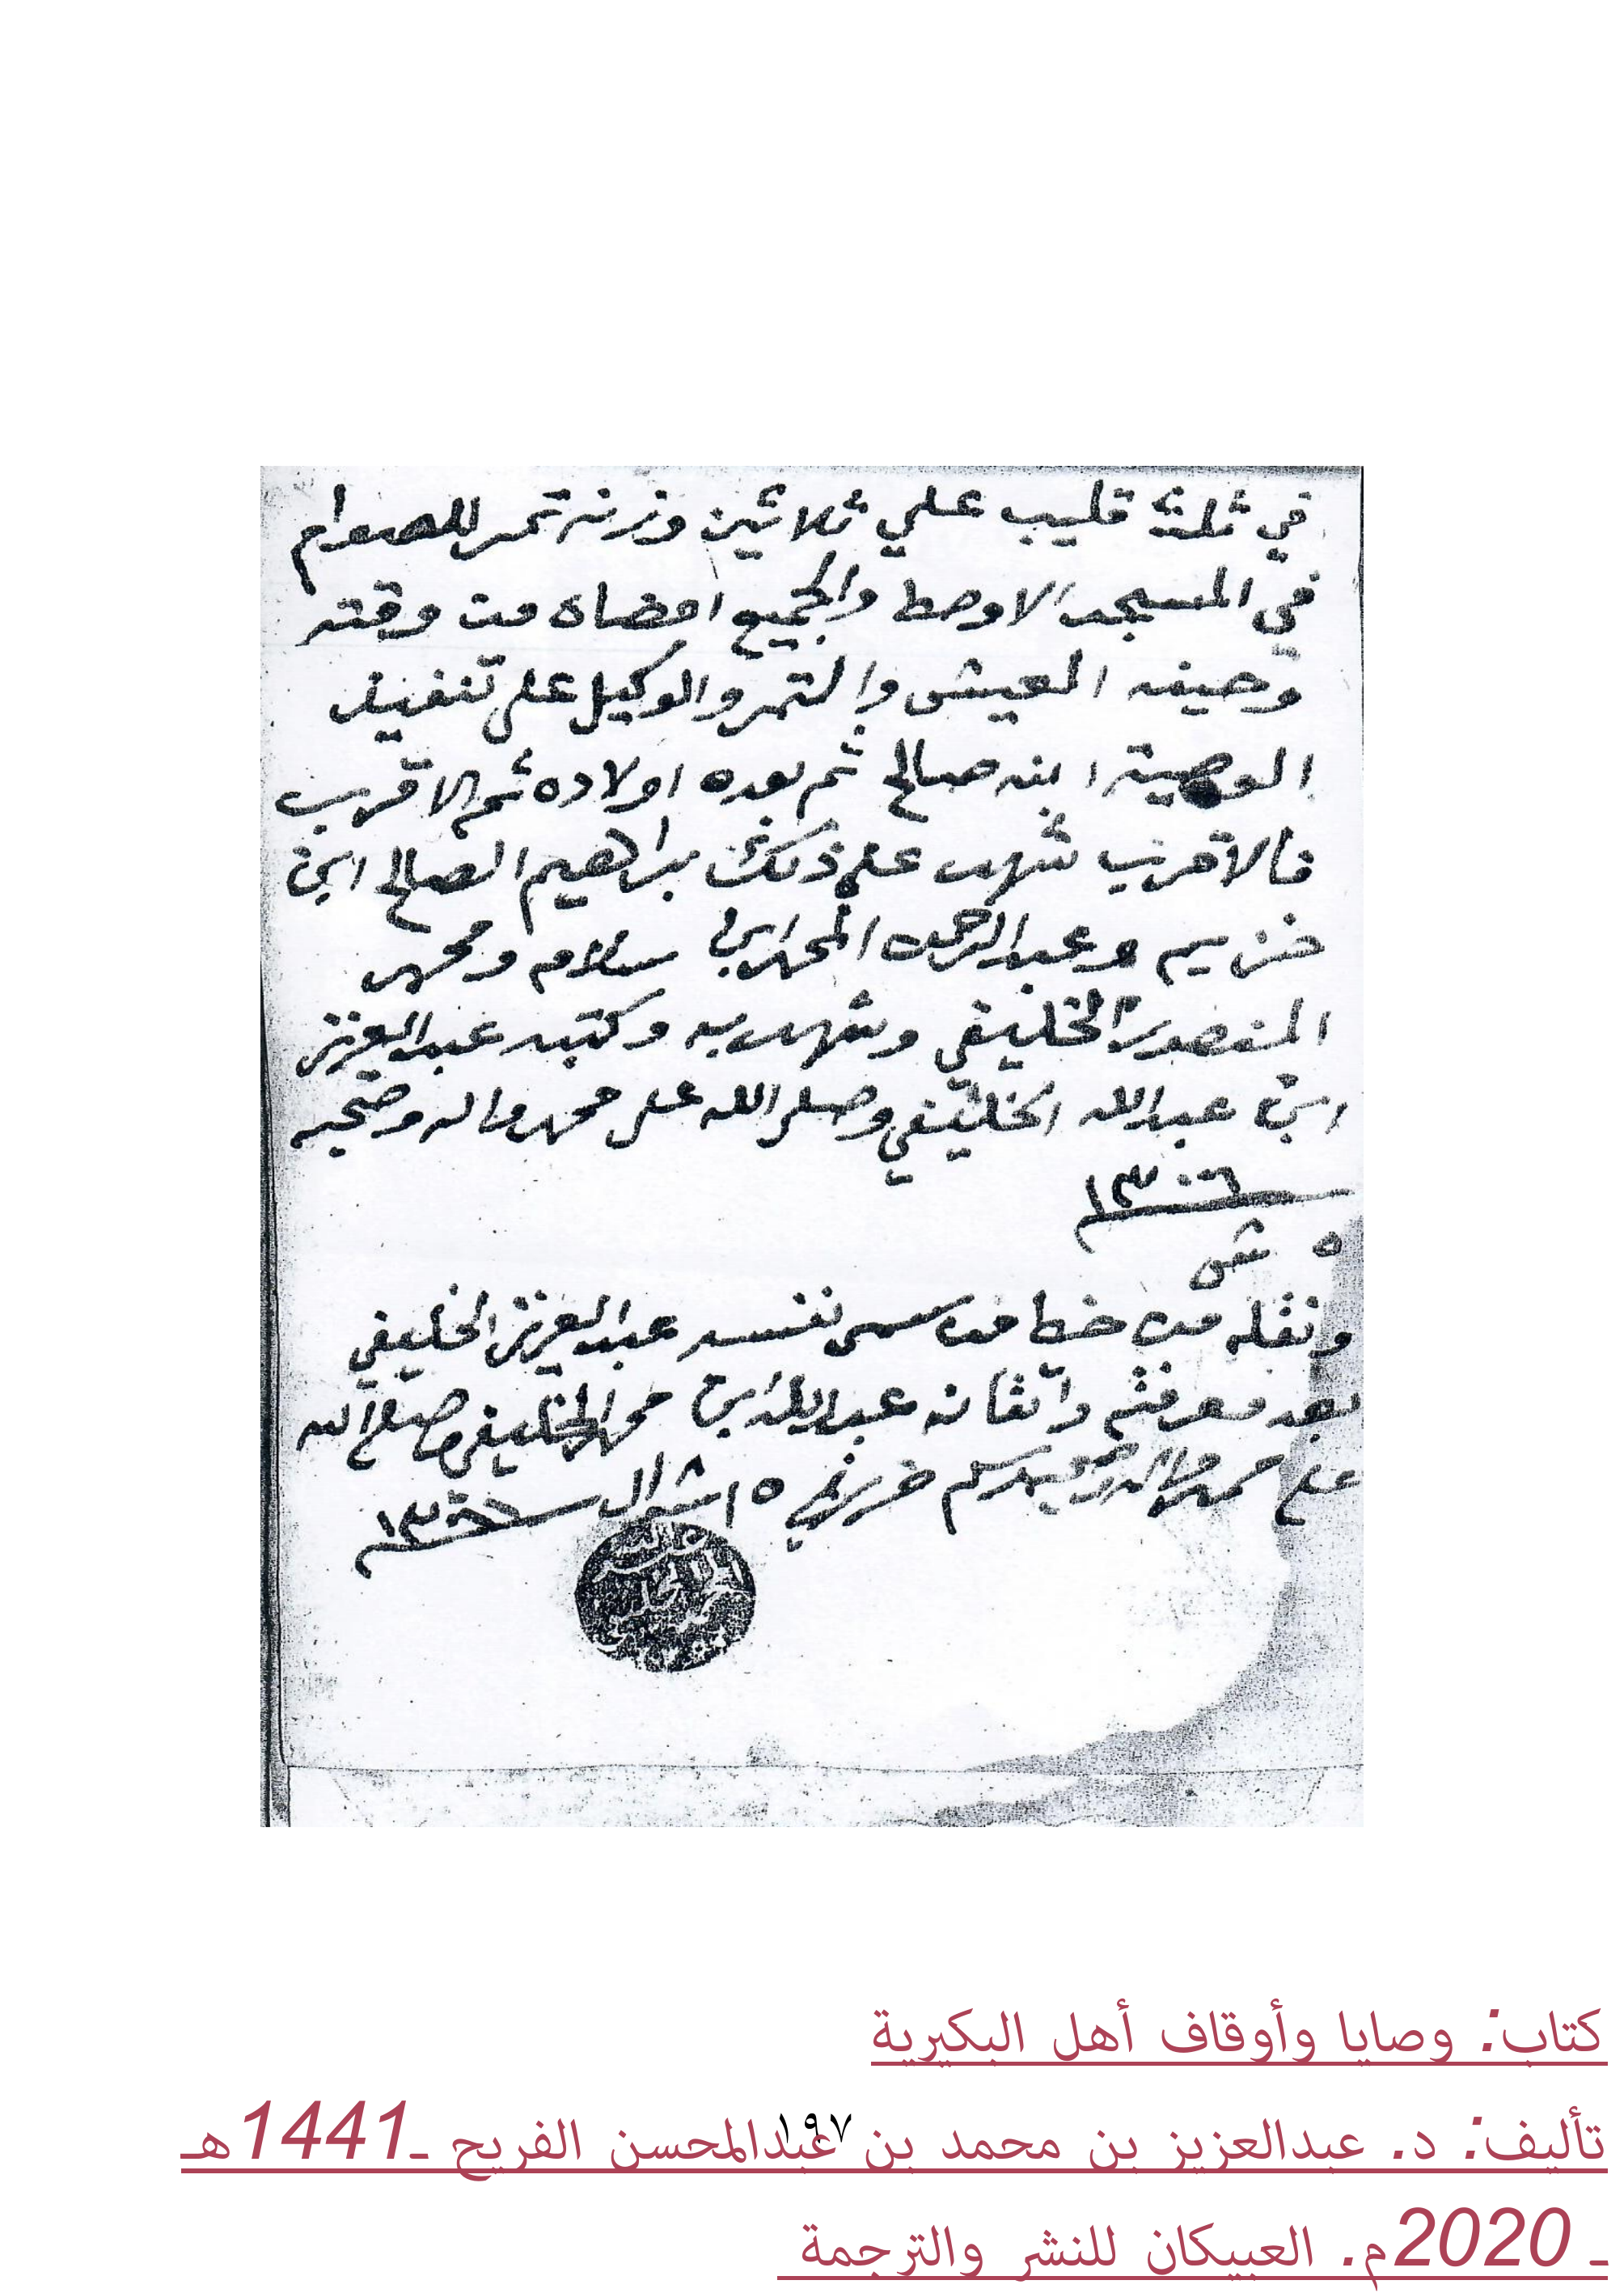 في ثلث قليب علي ثلاثين وزنة تمر للصوام
في المسجد الاوصط والجميع امضاه من وقته
وحينه العيش والتمر والوكيل على تنفيذ
الوصية ابنه صالح ثم بعده اولاده ثم الاقرب
فالاقرب شهد على ذلك براهيم الصالح ابن
خزيم وعبدالرحمن المحمد سلام ومحمد
المنصور الخليفي وشهد به وكتبه عبدالعزيز
ابن عبدالله الخليفي وصلى الله على محمد واله وصحبه
١٣٠٦
٥ ش
ونقله من خط من سمى نفسه عبدالعزيز الخليفي
بعد معرفته واتقانه عبدالله ابن محمد الخليفي وصلى الله
على محمد واله وصحبه وسلم ١٥ شوال
كتاب: وصايا وأوقاف أهل البكيرية
تأليف: د. عبدالعزيز بن محمد بن عبدالمحسن الفريح ـ1441هـ
١٩٧
ـ 2020م. العبيكان للنشر والترجمة